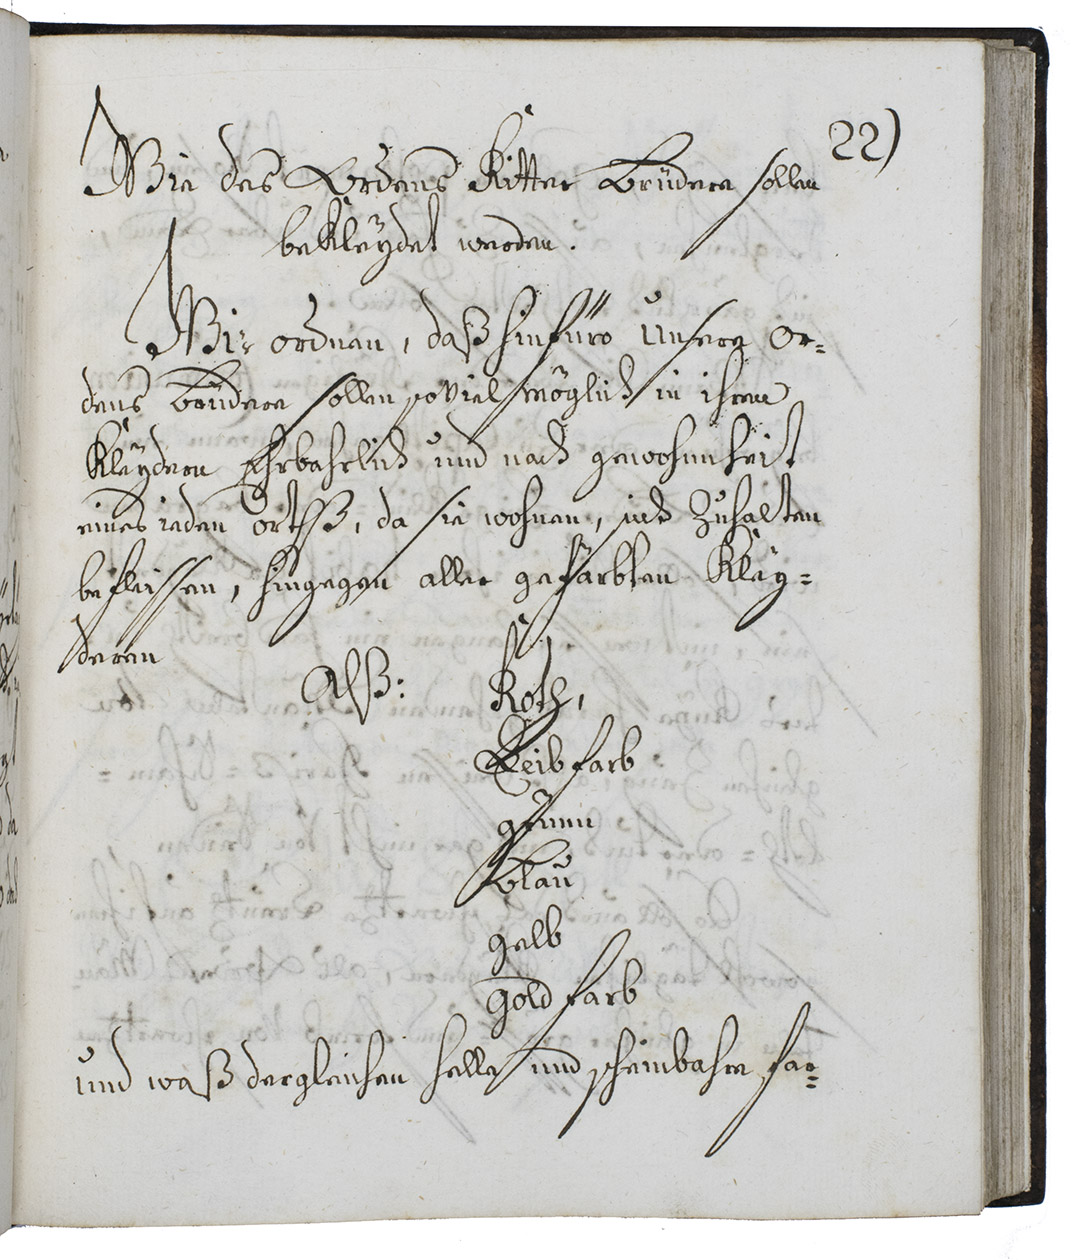 22)
Wie des Ordens Ritter Brüdere sollen
bekleÿdet werden.
Wir ordnen, daß hinfüro Unsere Or=
dens Brüdere sollen soviel möglich in ihren
Kleÿdern Ehrbahrlich und nach gewohnheit
eines ieden orthß, da sie wohnen, sich Zuhalten
befleissen, hingegen aller gefärbten Kleÿ=
deren
Alß: Roth,
Leibfarb
grünn
blau
gelb
goldfarb
und waß dergleichen helle und scheinbahre far=